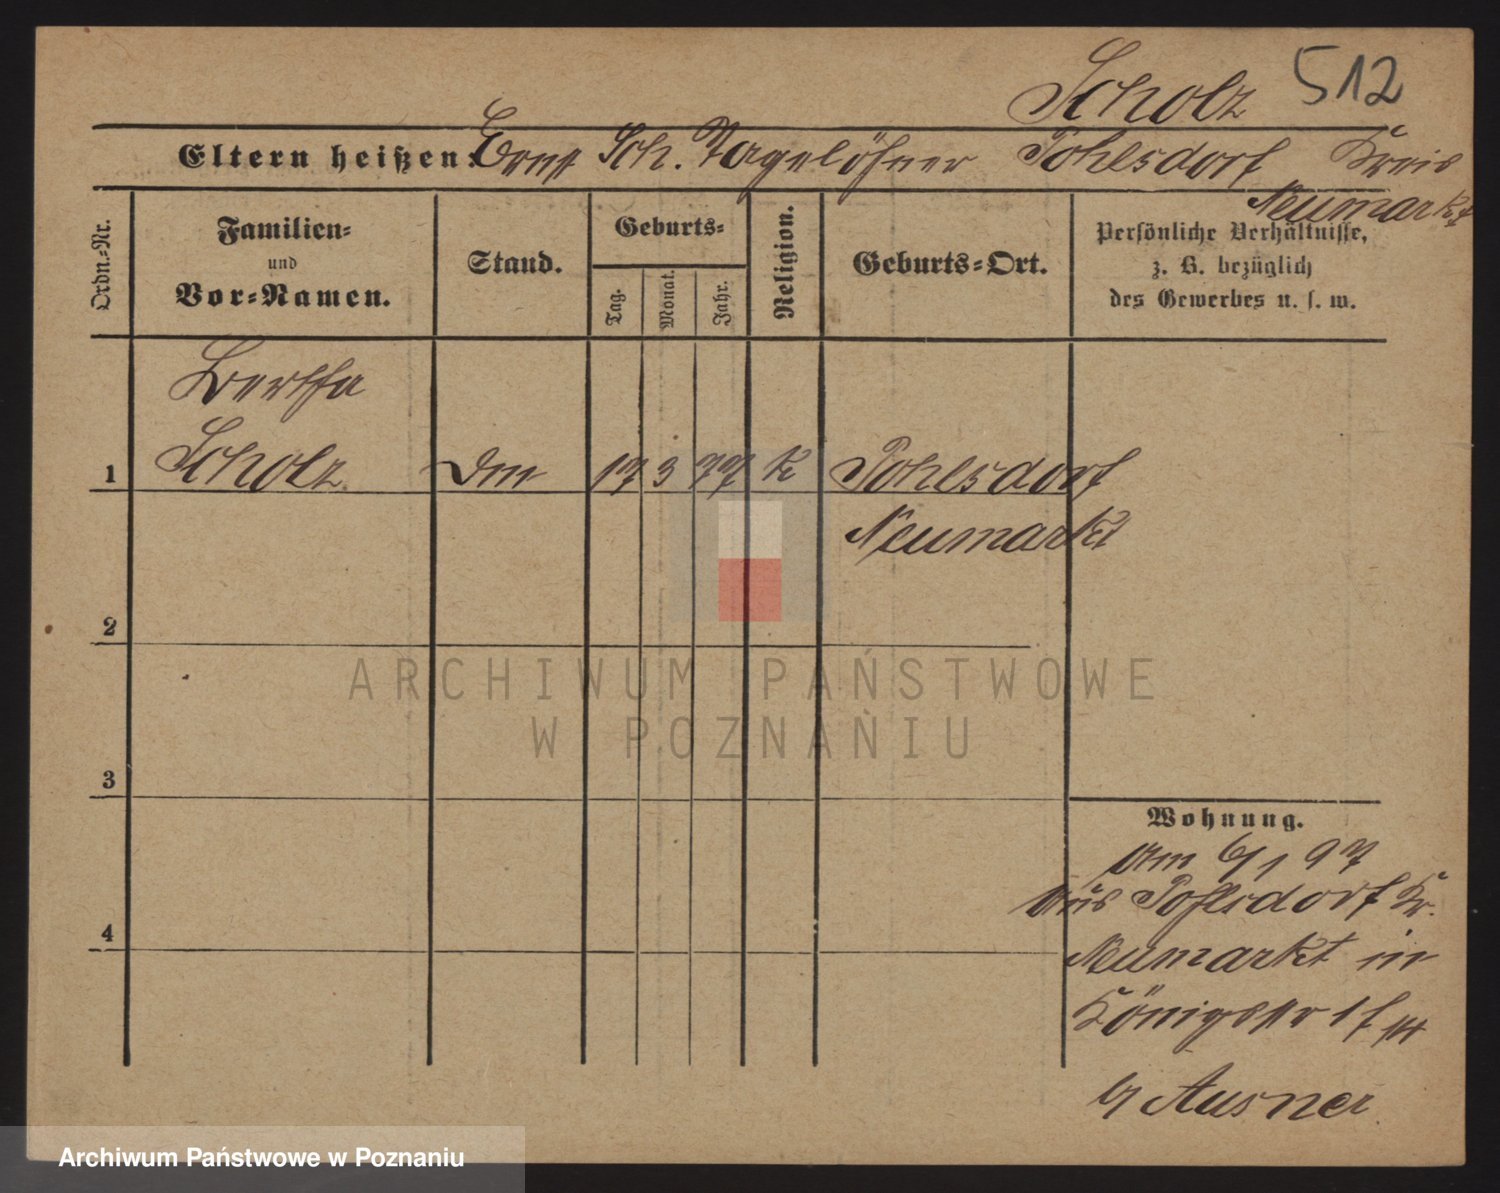 Scholz 512
Eltern heißen: Ernst Sch. Tagelöhner Pohlsdorf Kreis
Neumarkt
Ordn.-Nr.
Familien-
und
Vor-Namen.
Stand.
Geburts-
Tag.
Monat.
Jahr.
Religion.
Geburts-Ort.
Persönliche Verhältnisse,
z. B. bezüglich
des Gewerbes u. s. w.
Bertha
1 Scholz 17 3 77 k Pohlsdorf
Neumarkt
2
ARCHIWUM PAŃSTWOWE
W POZNANIU
3
Wohnung.
am 6/1 97
aus Pohlsdorf Kr.
4
Neumarkt in
Königsstr
Ausner
Archiwum Państwowe w Poznaniu